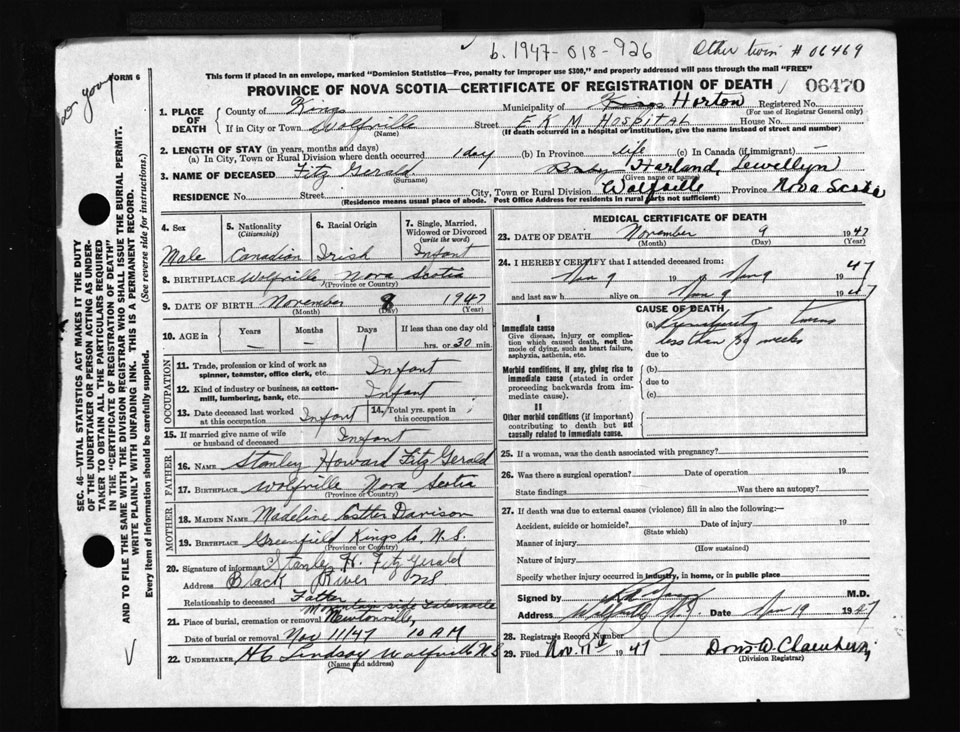 b. 1947-018-926 Other twin # 06469
FORM 6
This form if placed in an envelope, marked "Dominion Statistics—Free, penalty for improper use $300," and properly addressed will pass through the mail "FREE"
PROVINCE OF NOVA SCOTIA—CERTIFICATE OF REGISTRATION OF DEATH 06470
1. PLACE OF DEATH County of Kings Municipality of Kings Horton Registered No.
(For use of Registrar General only)
If in City or Town Wolfville Street E K M HOSPITAL House No.
(Name) (If death occurred in a hospital or institution, give the name instead of street and number)
2. LENGTH OF STAY (in years, months and days)
(a) In City, Town or Rural Division where death occurred 1 day (b) In Province life (c) In Canada (if immigrant)
3. NAME OF DECEASED Fitz Gerald Baby Harland, Lewellyn
(Surname) (Given name or names)
RESIDENCE No. Street City, Town or Rural Division Wolfville Province Nova Scotia
(Residence means usual place of abode. Post Office Address for residents in rural parts not sufficient)
4. Sex Male
5. Nationality (Citizenship) Canadian
6. Racial Origin Irish
7. Single, Married, Widowed or Divorced (write the word) Infant
8. BIRTHPLACE Wolfville Nova Scotia
(Province or Country)
9. DATE OF BIRTH November 8 1947
(Month) (Day) (Year)
10. AGE in Years Months Days If less than one day old
— — 1 hrs. or 30 min.
OCCUPATION
11. Trade, profession or kind of work as spinner, teamster, office clerk, etc. Infant
12. Kind of industry or business, as cotton-mill, lumbering, bank, etc. Infant
13. Date deceased last worked at this occupation Infant 14. Total yrs. spent in this occupation
15. If married give name of wife or husband of deceased Infant
FATHER
16. NAME Stanley Howard Fitz Gerald
17. BIRTHPLACE Wolfville Nova Scotia
(Province or Country)
MOTHER
18. MAIDEN NAME Madeline Esther Davison
19. BIRTHPLACE Greenfield Kings Co. N.S.
(Province or Country)
20. Signature of informant Stanley H. Fitz Gerald
Address Black River NS
Relationship to deceased Father
Mountain side Tabernacle
21. Place of burial, cremation or removal Newtonville,
Date of burial or removal Nov 11/47 10 AM
22. UNDERTAKER H C Lindsay Wolfville N.S
(Name and address)
MEDICAL CERTIFICATE OF DEATH
23. DATE OF DEATH November 9 1947
(Month) (Day) (Year)
24. I HEREBY CERTIFY that I attended deceased from:
Nov 9 19 to Nov 9 47
and last saw h alive on Nov 9 1947
CAUSE OF DEATH
I
Immediate cause
Give disease, injury or complication which caused death, not the mode of dying, such as heart failure, asphyxia, asthenia, etc.
(a) Prematurity Twins
less than 30 weeks
due to
Morbid conditions, if any, giving rise to immediate cause (stated in order proceeding backwards from immediate cause).
(b)
due to
(c)
II
Other morbid conditions (if important) contributing to death but not causally related to immediate cause.
25. If a woman, was the death associated with pregnancy?
26. Was there a surgical operation? Date of operation 19
State findings Was there an autopsy?
27. If death was due to external causes (violence) fill in also the following:—
Accident, suicide or homicide? Date of injury 19
(State which)
Manner of injury
(How sustained)
Nature of injury
Specify whether injury occurred in industry, in home, or in public place
Signed by M.D.
Address Wolfville N.S. Date Nov 19 1947
28. Registrar's Record Number
29. Filed Nov. 11th 1947
(Division Registrar)
SEC. 46—VITAL STATISTICS ACT MAKES IT THE DUTY
OF THE UNDERTAKER OR PERSON ACTING AS UNDER-
TAKER TO OBTAIN ALL THE PARTICULARS REQUIRED
IN THE "CERTIFICATE OF REGISTRATION OF DEATH"
AND TO FILE THE SAME WITH THE DIVISION REGISTRAR WHO SHALL ISSUE THE BURIAL PERMIT.
WRITE PLAINLY WITH UNFADING INK. THIS IS A PERMANENT RECORD.
Every item of information should be carefully supplied. (See reverse side for instructions.)